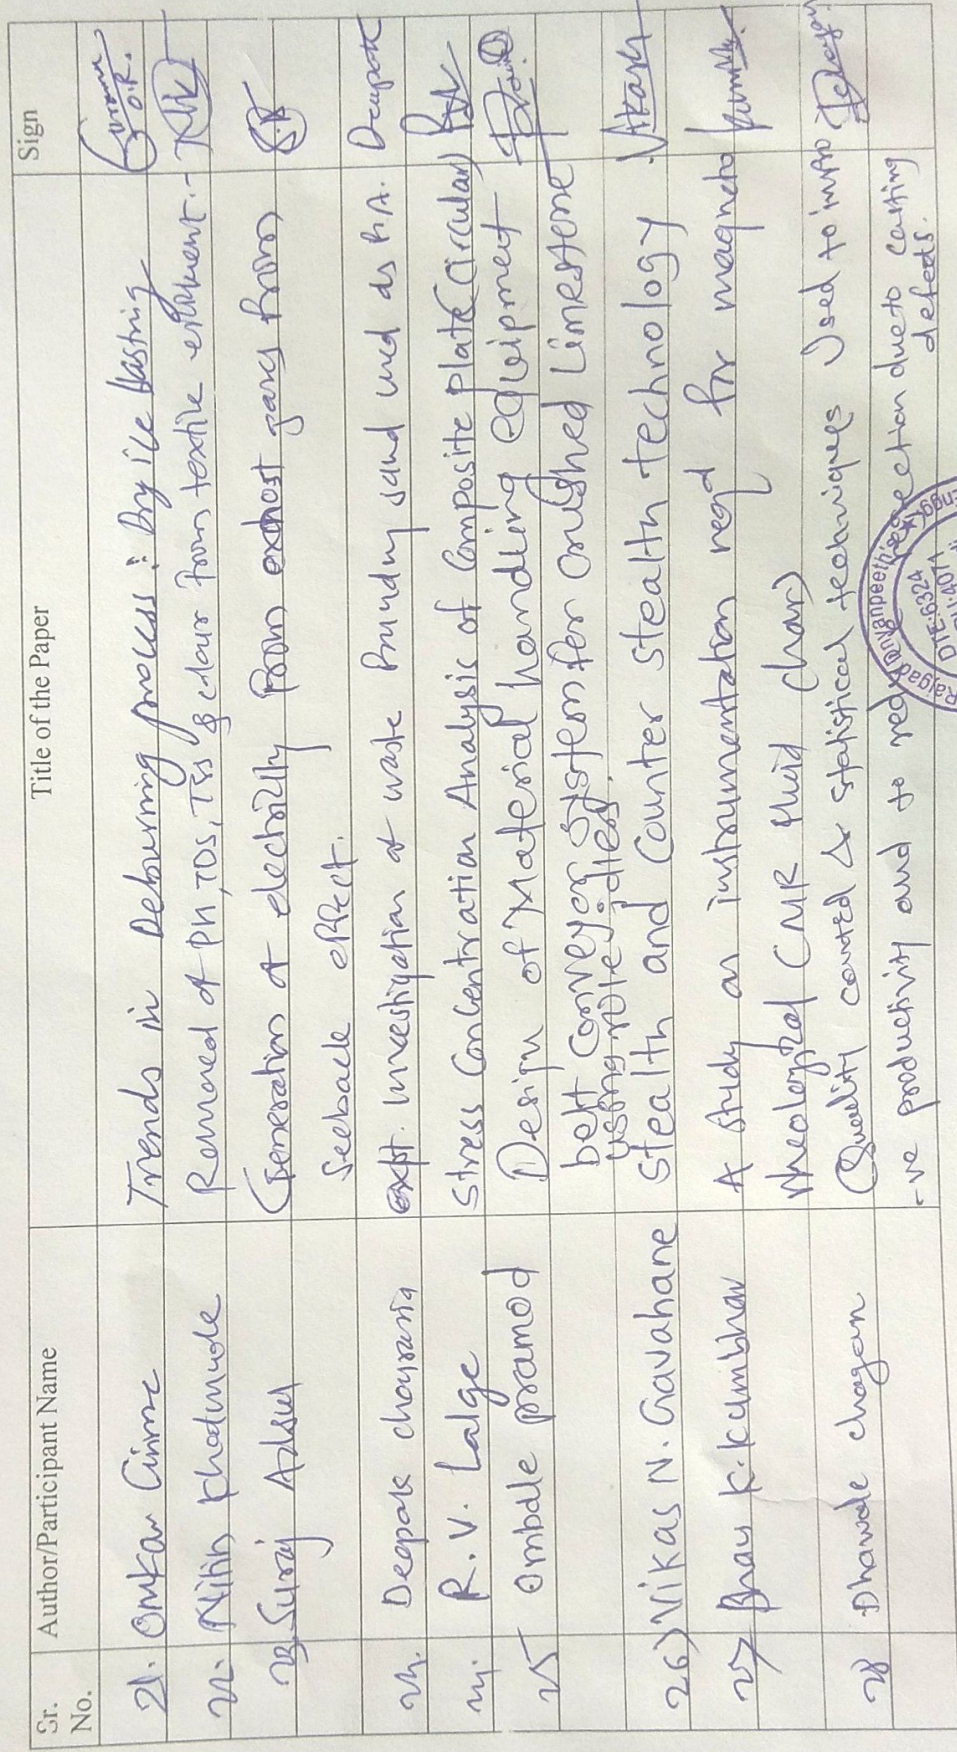 Sr. No. Author/Participant Name Title of the Paper Sign
21. Omkar Trends in Deburring process : Dry ice blasting
22. Nitin Khadmode Removed of PH, TDS, TSS & colour from textile effluent.
23. Suraj Generation of electricity from exhost gases from
Seeback effect.
24. Deepak chourasia expt. investigation of waste foundry sand used as F.A. Deepak
24. R. V. Lalge stress Concentration Analysis of Composite plate (Circular)
25 Ombale pramod Design of Material handling equipment
belt conveyor system for crushed limestone
using idler
26) Vikas N. Gavahane stealth and Counter stealth technology. Vikas
27) Bhau K. Kumbhar A study on instrumentation reqd for magneto
rheological (MR fluid char)
28 Dhawale chagan Quality control & statistical techniques Used to impro
-ve productivity and to rejection due to casting
defects.
Rajgad Dnyanpeeth's
DTE:6324